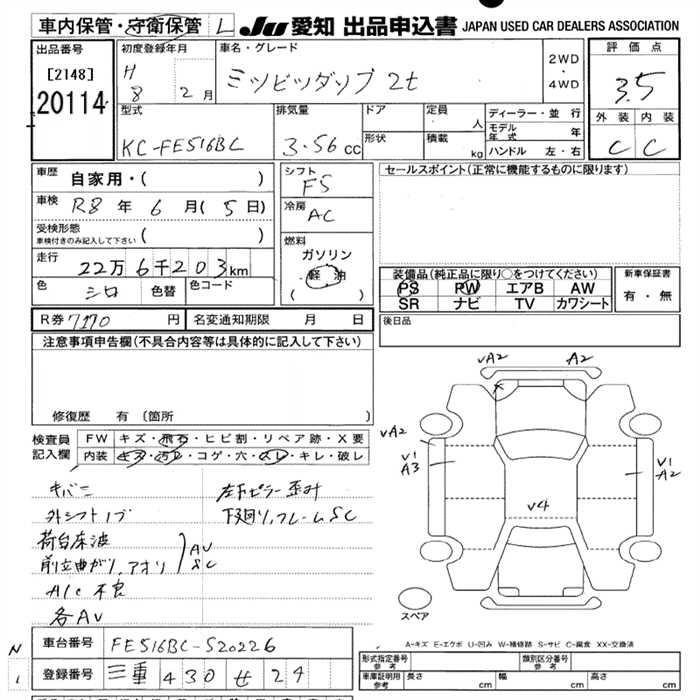 車内保管・守衛保管 L JU 愛知 出品申込書 JAPAN USED CAR DEALERS ASSOCIATION
出品番号 [2148] 20114
初度登録年月 H 8 2月
車名・グレード ミツビシダンプ 2t
2WD・4WD
評価点 3.5
外装 内装 C C
型式 KC-FE516BC
排気量 3.56cc
ドア 形状
定員 人
積載 kg
ディーラー・並行
モデル年式 年
ハンドル 左・右
車歴 自家用・( )
車検 R8年 6月(5日)
受検形態 車検付きのみ記入して下さい ( )
走行 22万6千203km
色 シロ 色替 色コード
シフト F5
冷房 AC
燃料 ガソリン 軽油 ( )
セールスポイント(正常に機能するものに限ります)
装備品(純正品に限り○をつけてください)
PS PW エアB AW
SR ナビ TV カワシート
新車保証書 有・無
R券 7170円 名変通知期限 月 日
後日品
注意事項申告欄(不具合内容等は具体的に記入して下さい)
修復歴 有(箇所 )
検査員記入欄
FW キズ・飛石・ヒビ割・リペア跡・X要
内装 キズ・汚レ・コゲ・穴・スレ・キレ・破レ
キバミ
外シフトノブ
荷台床波
前立曲がり、アオリ AV SC
A/C 不良
各AV
左下ピラー歪み
下廻り、フレームSC
VA2 A2
VA2
V1 A3
V1 A2
V4
スペア
A-キズ E-エクボ U-凹み W-補修跡 S-サビ C-腐食 XX-交換済
N 1
車台番号 FE516BC-520226
登録番号 三重 430 せ 24
形式指定番号 参考 類別区分番号 参考
車庫証明用 参考 長さ cm 幅 cm 高さ cm